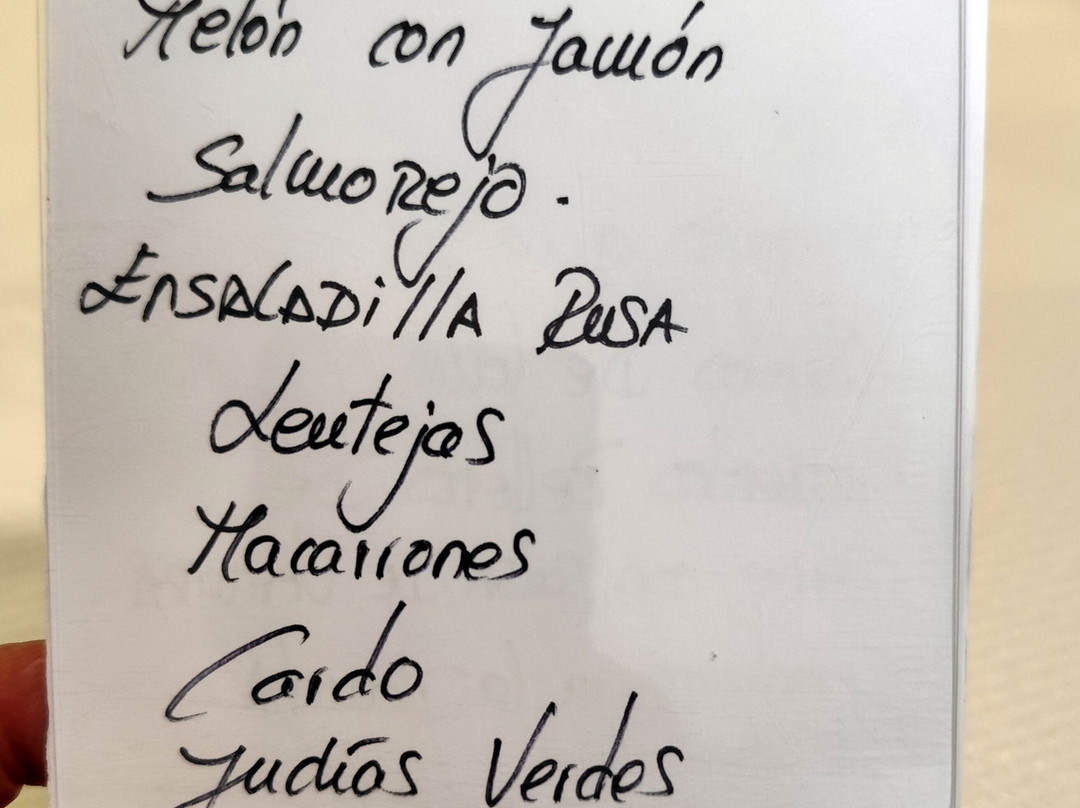 Melón con Jamón
Salmorejo.
ENSALADillA RUSA
Lentejas
Macarrones
Cardo
Judías Verdes